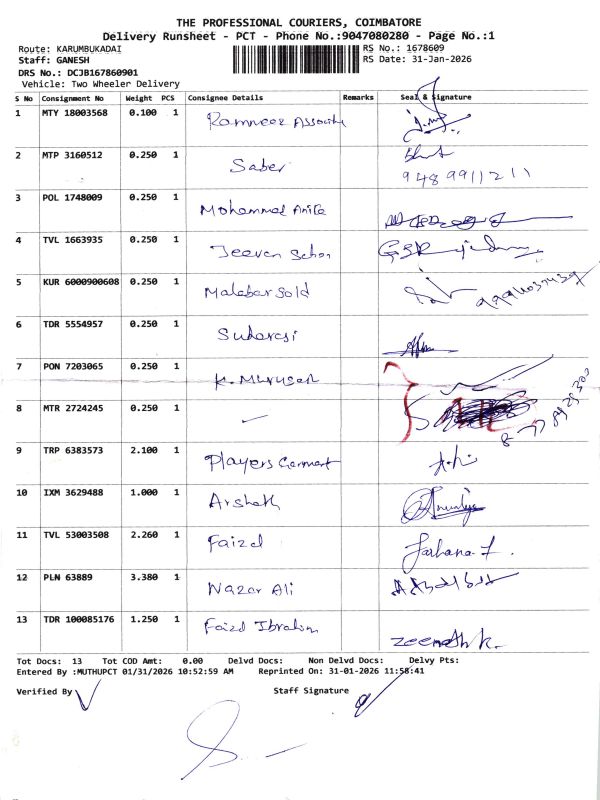 THE PROFESSIONAL COURIERS, COIMBATORE
Delivery Runsheet - PCT - Phone No.:9047080280 - Page No.:1
Route: KARUMBUKADAI
RS No.: 1678609
Staff: GANESH
RS Date: 31-Jan-2026
DRS No.: DCJB167860901
Vehicle: Two Wheeler Delivery
S No Consignment No Weight PCS Consignee Details Remarks Seal & Signature
1 MTY 18003568 0.100 1 Ramneez Associate
2 MTP 3160512 0.250 1 Saber
9489911211
3 POL 1748009 0.250 1 Mohammed Anifa
4 TVL 1663935 0.250 1 Jeevan
5 KUR 6000900608 0.250 1 Malabar Gold
6 TDR 5554957 0.250 1
7 PON 7203065 0.250 1 K. Murugan
8 MTR 2724245 0.250 1
9 TRP 6383573 2.100 1 Players Garment
10 IXM 3629488 1.000 1 Arshath
11 TVL 53003508 2.260 1 Faizal Farhana.F.
12 PLN 63889 3.380 1 Nazar Ali
13 TDR 100085176 1.250 1 Faizd Ibrahim Zeenath K.
Tot Docs: 13 Tot COD Amt: 0.00 Delvd Docs: Non Delvd Docs: Delvy Pts:
Entered By :MUTHUPCT 01/31/2026 10:52:59 AM Reprinted On: 31-01-2026 11:58:41
Verified By Staff Signature